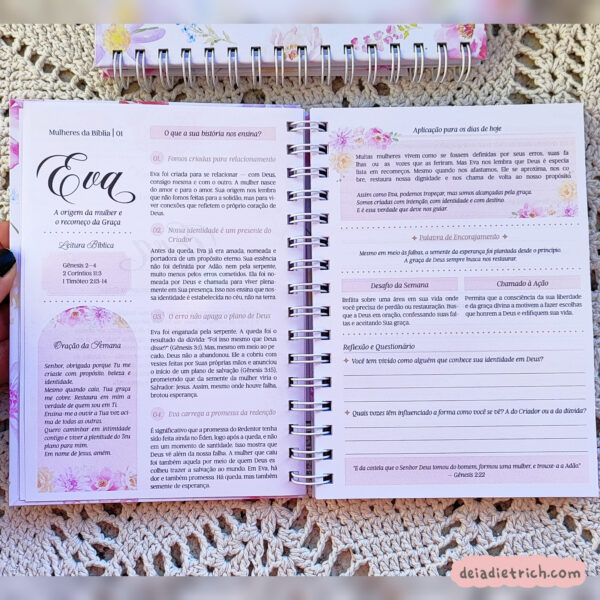 Mulheres da Bíblia | 01
Eva
A origem da mulher e
o recomeço da Graça
Leitura Bíblica
Gênesis 2—4
2 Coríntios 11:3
1 Timóteo 2:13-14
Oração da Semana
Senhor, obrigada porque Tu me
criaste com propósito, beleza e
identidade.
Mesmo quando caia, Tua graça
me cobre. Restaura em mim a
verdade de quem sou em Ti.
Ensina-me a ouvir a Tua voz aci-
ma de todas as outras.
Quero caminhar em intimidade
contigo e viver a plenitude do Teu
plano para mim.
Em nome de Jesus, amém.
O que a sua história nos ensina?
01. Fomos criadas para relacionamento
Eva foi criada para se relacionar — com Deus,
consigo mesma e com o outro. A mulher nasce
do amor e para o amor. Sua origem nos lembra
que não fomos feitas para a solidão, mas para vi-
ver conexões que refletem o próprio coração de
Deus.
02. Nossa identidade é um presente do
Criador
Antes da queda, Eva já era amada, nomeada e
portadora de um propósito eterno. Sua essência
não foi definida por Adão, nem pela serpente,
muito menos pelos erros cometidos. Ela foi no-
meada por Deus e chamada para viver plena-
mente em Sua presença. Isso nos ensina que nos-
sa identidade é estabelecida no céu, não na terra.
03. O erro não apaga o plano de Deus
Eva foi enganada pela serpente. A queda foi o
resultado da dúvida: "Foi isso mesmo que Deus
disse?" (Gênesis 3:1). Mas, mesmo em meio ao pe-
cado, Deus não a abandonou. Ele a cobriu com
vestes feitas por Suas próprias mãos e anunciou
o início de um plano de salvação (Gênesis 3:15),
prometendo que da semente da mulher viria o
Salvador Jesus. Assim, mesmo onde houve falha,
brotou esperança.
04. Eva carrega a promessa da redenção
É significativo que a promessa do Redentor tenha
sido feita ainda no Éden, logo após a queda, e não
em um momento de santidade. Isso mostra que
Deus vê além da nossa falha. A mulher que caiu
foi também aquela por meio de quem Deus es-
colheu trazer a salvação ao mundo. Em Eva, há
dor e também promessa. Há queda, mas também
semente de esperança.
Aplicação para os dias de hoje
Muitas mulheres vivem como se fossem definidas por seus erros, suas fa
lhas ou as vozes que as feriram. Mas Eva nos lembra que Deus é especia
lista em recomeços. Mesmo quando nos afastamos, Ele se aproxima, nos co
bre, restaura nossa dignidade e nos chama de volta ao nosso propósito
Assim como Eva, podemos tropeçar, mas somos alcançadas pela graça.
Somos criadas com intenção, com identidade e com destino.
E é essa verdade que deve nos guiar.
Palavra de Encorajamento
Mesmo em meio às falhas, a semente da esperança foi plantada desde o princípio.
A graça de Deus sempre busca nos restaurar.
Desafio da Semana
Reflita sobre uma área em sua vida onde
você precisa de perdão ou restauração. Bus-
que a Deus em oração, confessando suas fal-
tas e aceitando Sua graça.
Chamado à Ação
Permita que a consciência da sua liberdade
e da graça divina a motivem a fazer escolhas
que honrem a Deus e edifiquem sua vida.
Reflexão e Questionário
Você tem vivido como alguém que conhece sua identidade em Deus?
Quais vozes têm influenciado a forma como você se vê? A do Criador ou a da dúvida?
"E da costela que o Senhor Deus tomou do homem, formou uma mulher, e trouxe-a a Adão."
— Gênesis 2:22
deiadietrich.com